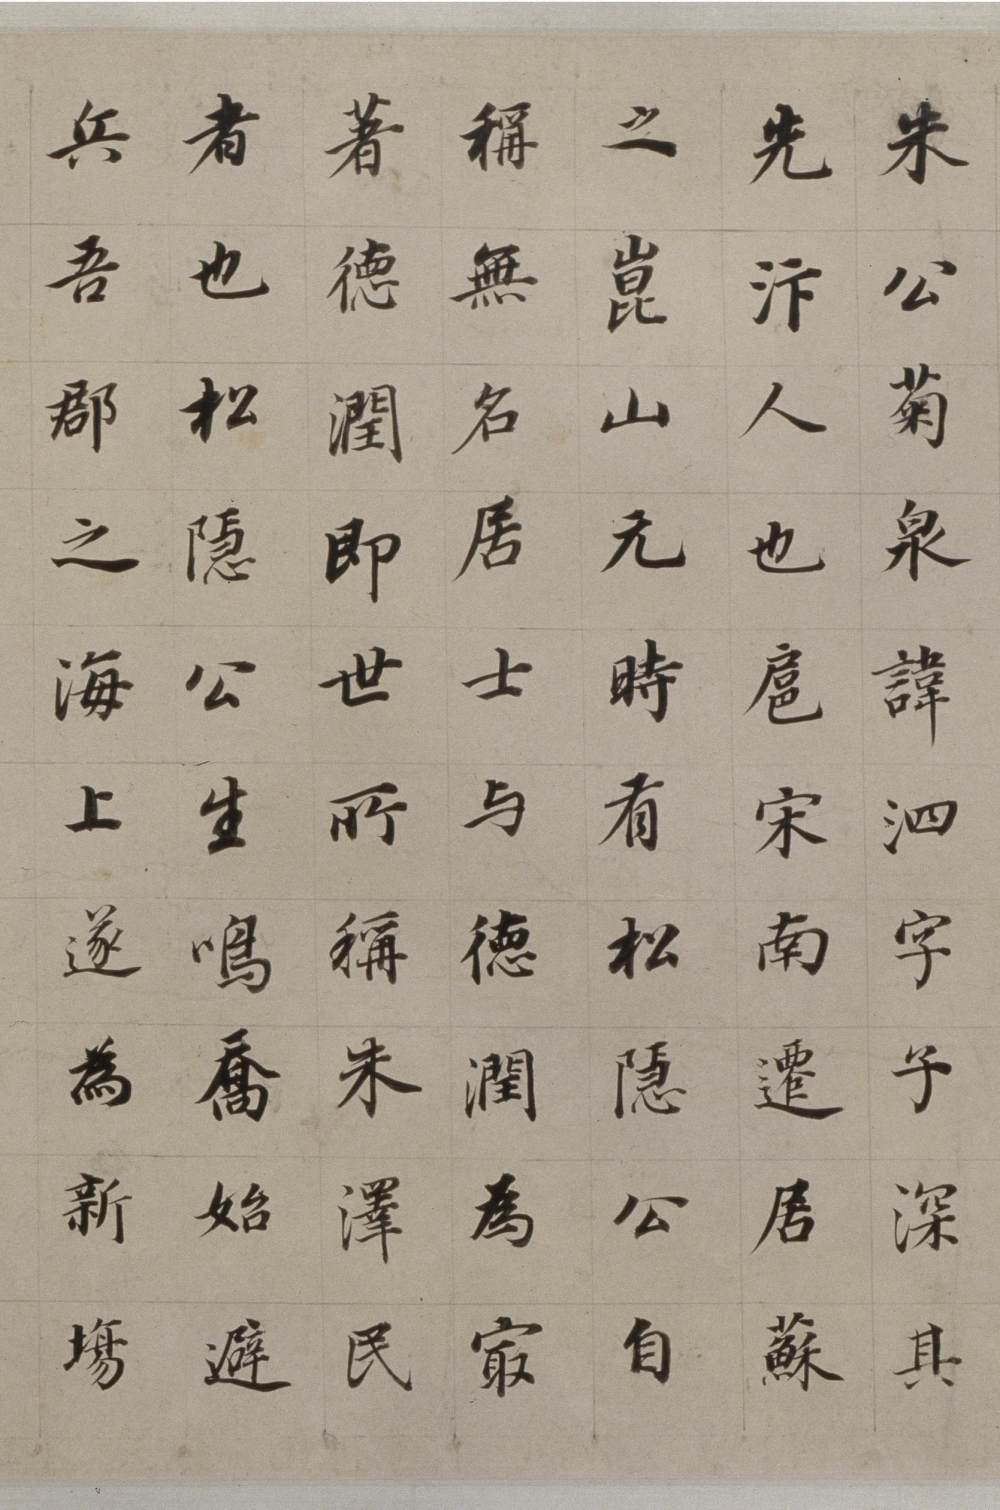 朱公菊泉諱泗字子深其
先汴人也扈宋南遷居蘇
之崑山元時有松隱公自
稱無名居士与德潤為寂
著德潤即世所稱朱澤民
者也松隱公生鳴喬始避
兵吾郡之海上遂為新塲